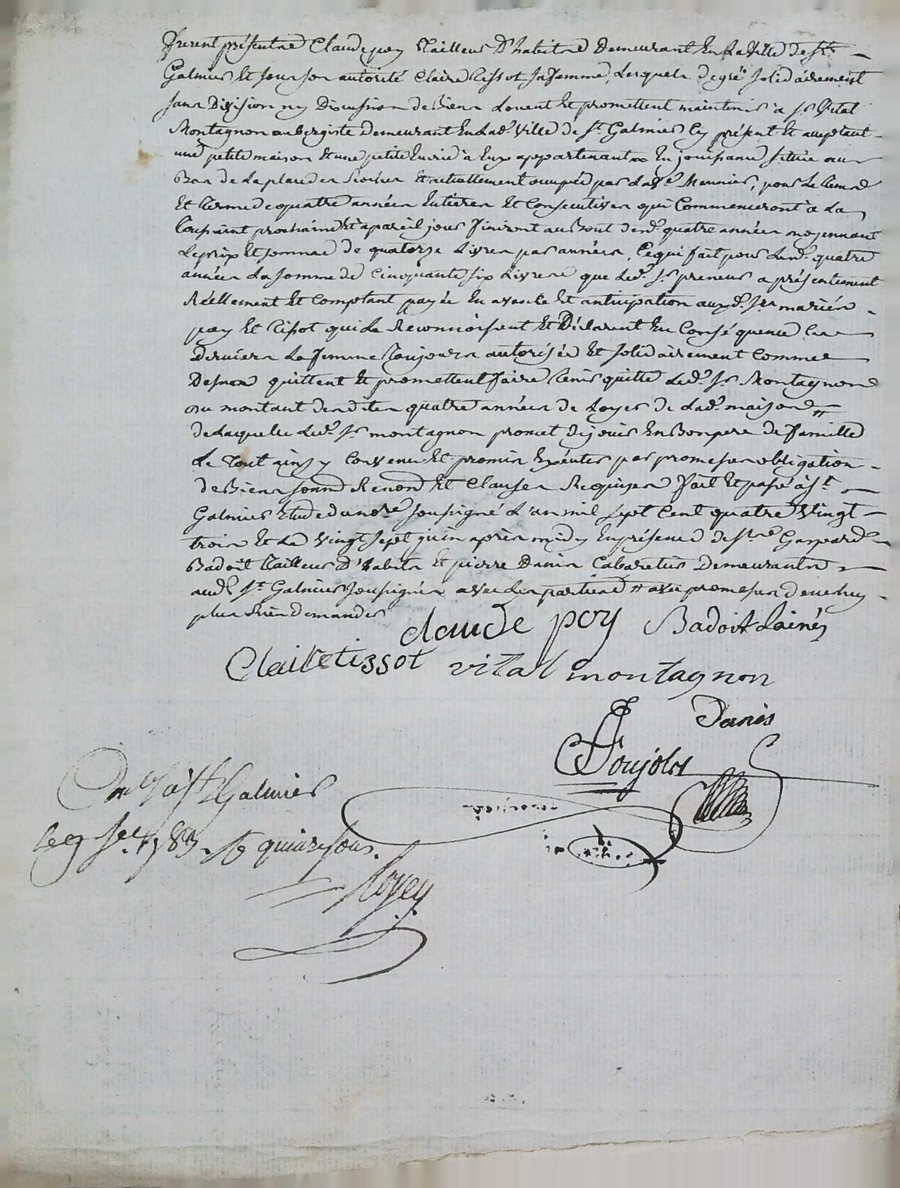 furent présents Claude poy Tailleur D'habits Demeurant En la Ville de St
Galmier Et sous son autorité Claire Tissot sa femme, Lesquels de gré solidairement
sans Division ny Discussion de Biens Louent Et promettent maintenir à Sr Vital
Montagnon aubergiste Demeurant En lad. Ville de St Galmier Cy présent Et acceptant
une petite maison Et une petite Ecurie à Eux appartenant En jouissance située au
Bas de la place des Roches Et actuellement occupée par la Ve Meunier, pour le tems
Et terme de quatre années Entieres Et Consecutives qui Commenceront à la
Toussaint prochaine Et à pareil jour finiront au Bout desd. quatre années moyennant
Le prix Et somme de quatorze Livres par années, Ce qui fait pour lesd. quatre
années La somme de Cinquante six Livres que led. Sr preneur a présentement
Réellement Et Comptant payée En avance Et anticipation auxd. Srs mariés
poy Et Tissot qui Le Reconnoissent Et Déclarent En Conséquence Ces
derniers La femme Toujours autorisée Et solidairement Comme
Dessus quittent Et promettent faire tenir quitte Led. Sr Montagnon
du montant desdites quatre années de Loyer de Lad. maison //
de laquelle Led. Sr montagnon promet de jouir En Bon pere de famille
Le Tout ainsy Convenu Et promis Exécuter par promesses obligation
de Biens soum. Renon. Et Clauses Requises fait Et passé à St
Galmier Etude du nore soussigné L'an mil sept Cent quatre Vingt
trois Et Le Vingt sept juin après midy En présence de Gaspard
Badoit Tailleur D'habits Et pierre Danis Cabaretier Demeurants
aud. St Galmier soussignés avec les parties // avec promesse de ne luy
plus Rien demander
claude poy Badoit Lainé
Claire tissot vital montagnon
Danis
Poujols
Con. à St Galmier
le 9 1783. quinze sous.